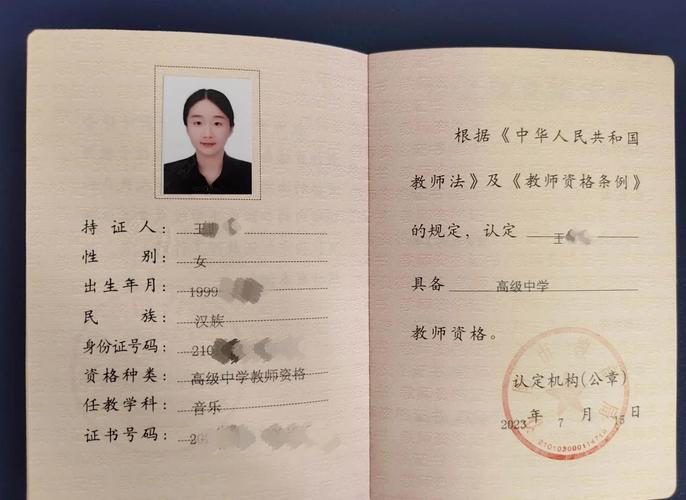 持证人：王
性别：女
出生年月：1999
民族：汉族
身份证号码：210
资格种类：高级中学教师资格
任教学科：音乐
证书号码：2
根据《中华人民共和国
教师法》及《教师资格条例》
的规定，认定 王
具备 高级中学
教师资格。
认定机构(公章)
2023年 7 月 15 日